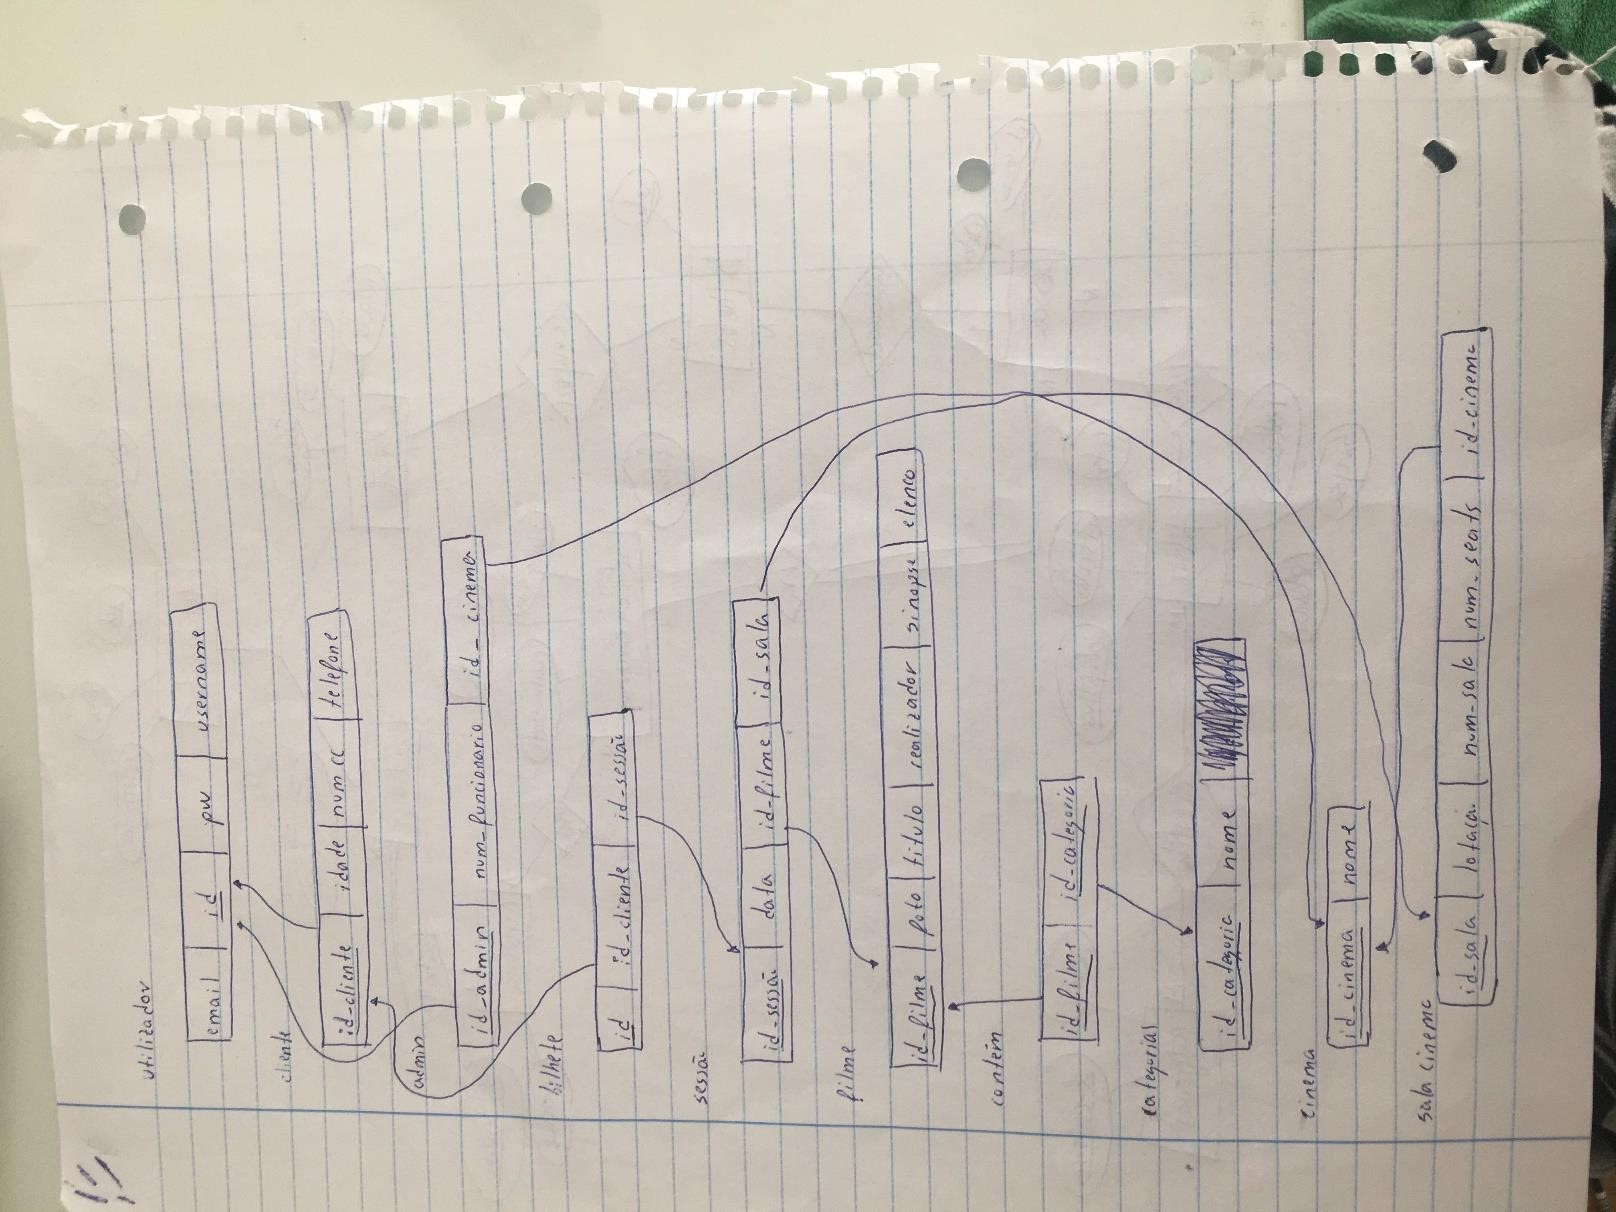 utilizador
email | id | pw | username
cliente
id_cliente | idade | num cc | telefone
admin
id_admin | num_funcionario | id_cinema
bilhete
id | id_cliente | id_sessão
sessão
id_sessão | data | id_filme | id_sala
filme
id_filme | foto | titulo | realizador | sinopse | elenco
contém
id_filme | id_categoria
categorias
id_categoria | nome
cinema
id_cinema | nome
sala cinema
id_sala | lotação | num_sala | num_seats | id_cinema